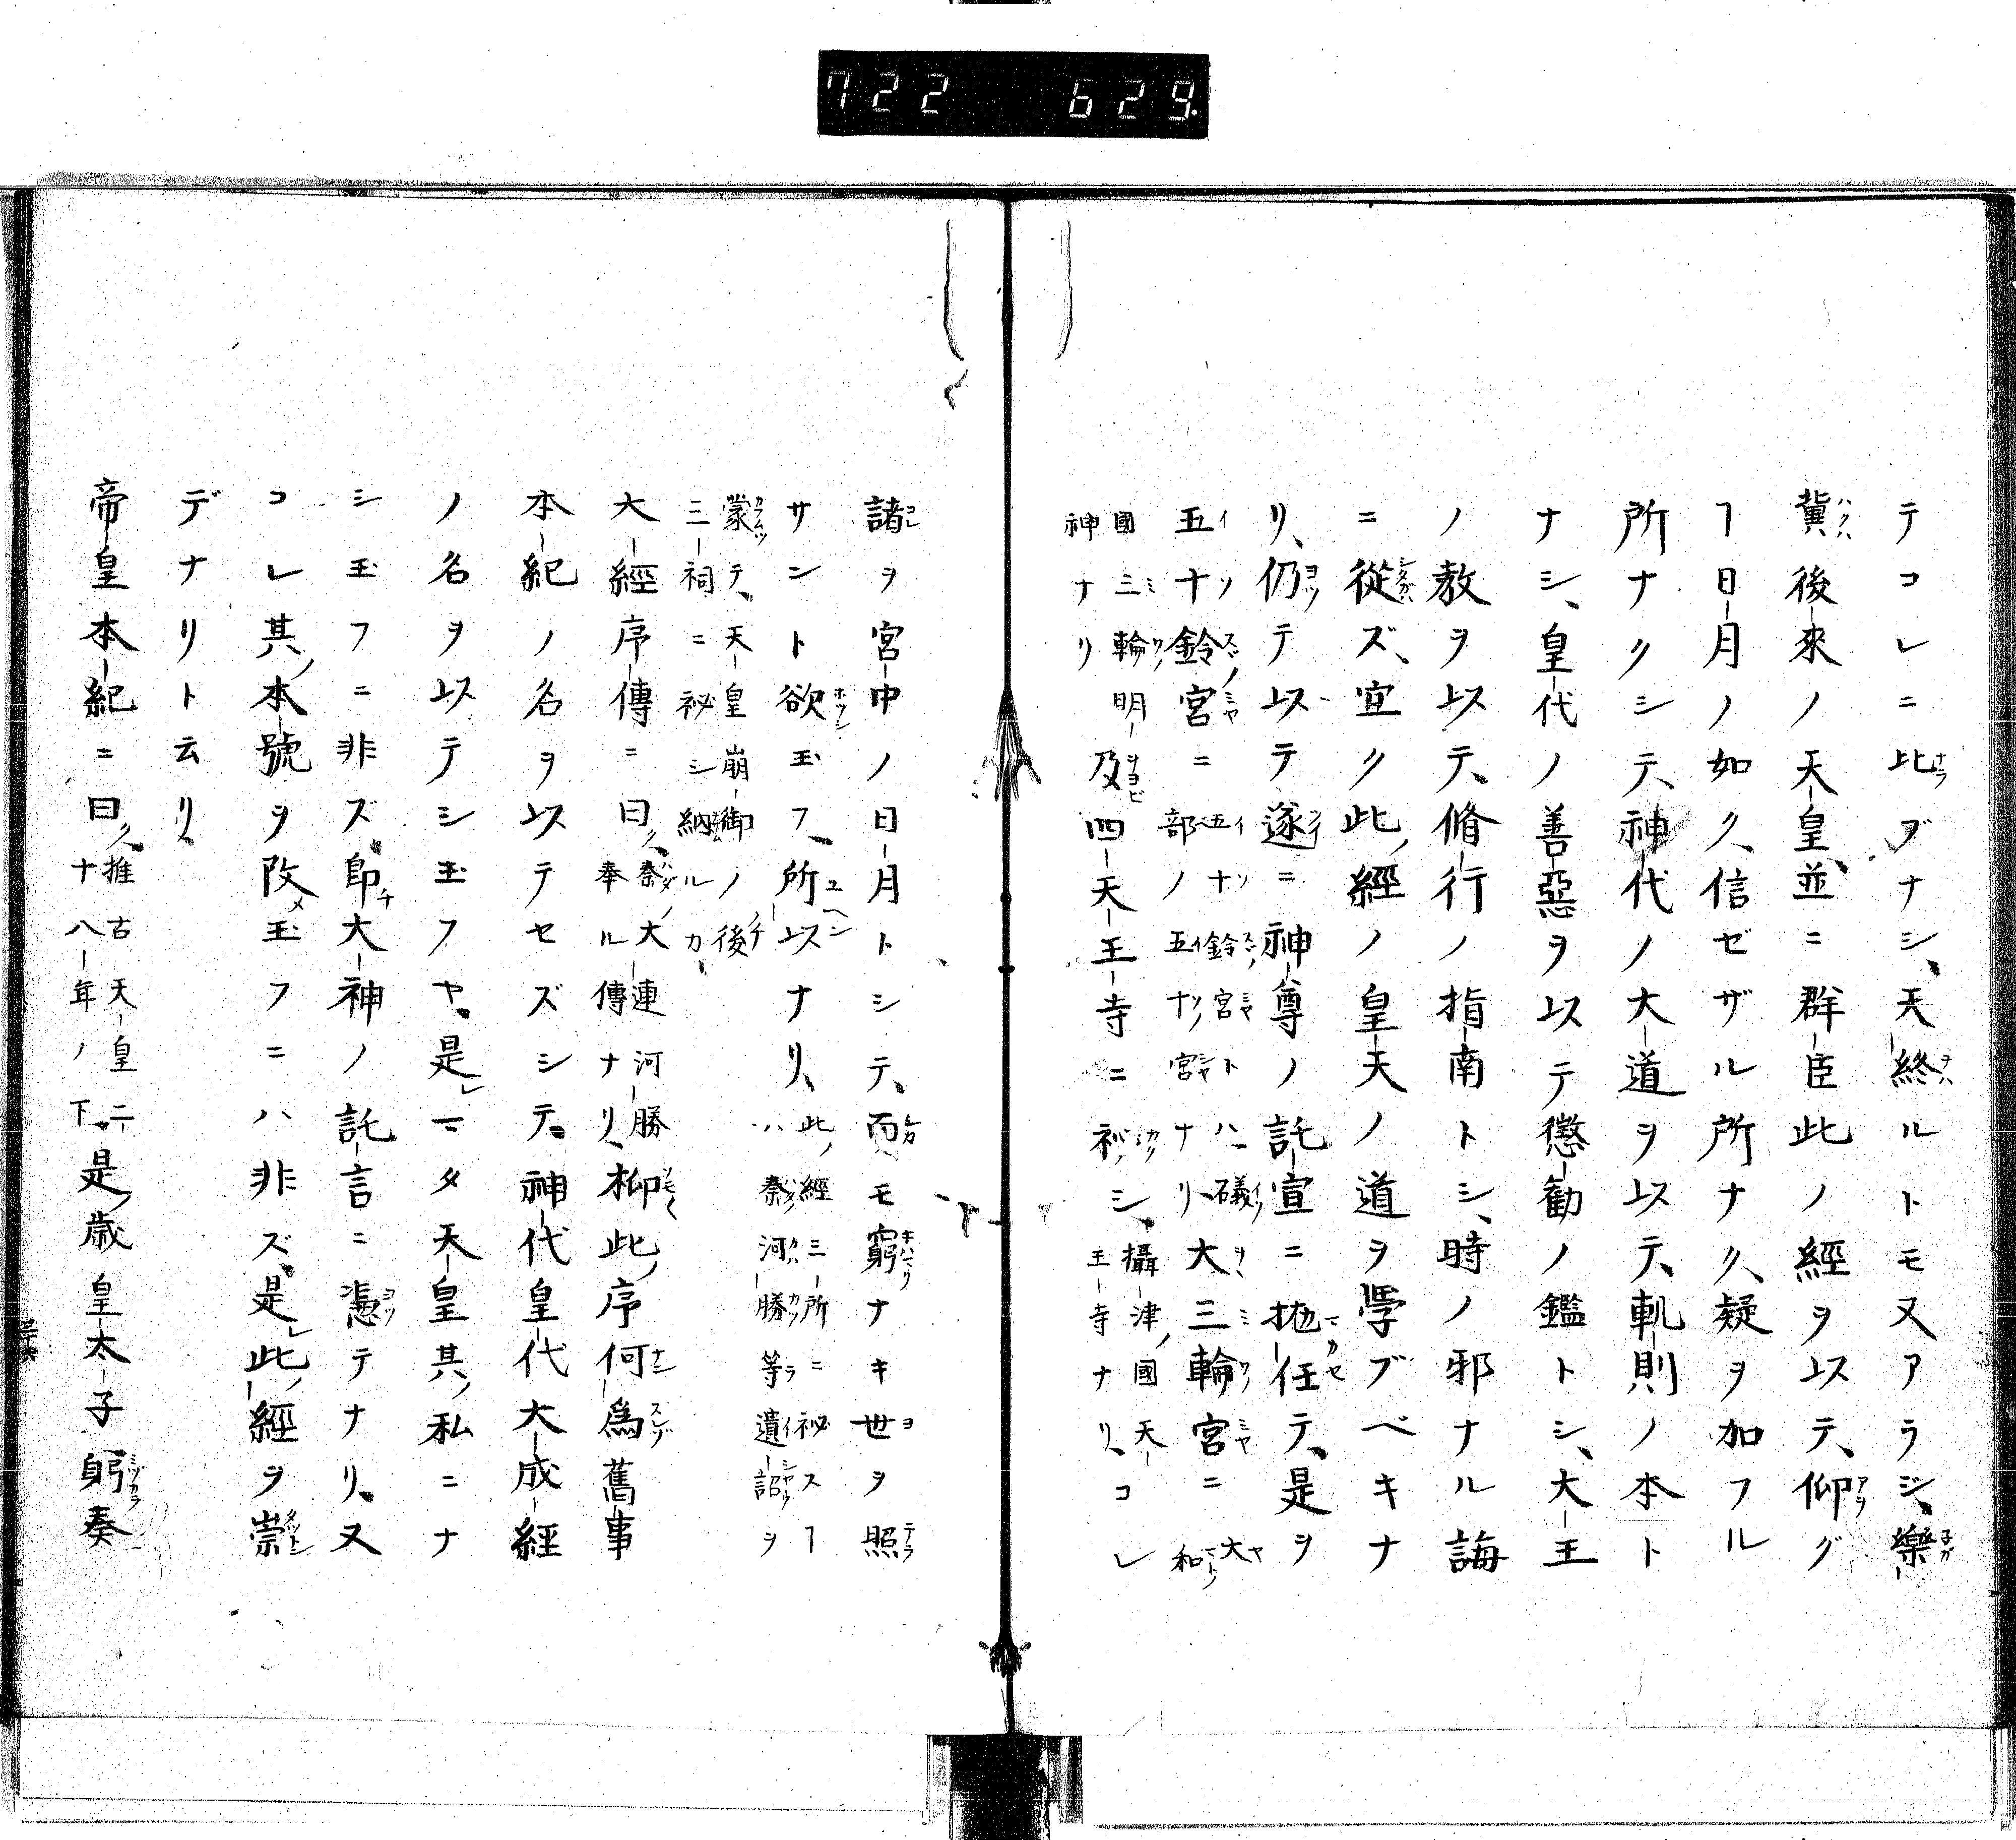 722 629.
テコレニ比ブナシ、天終ルトモ又アラジ、樂
冀後來ノ天皇並ニ群臣此ノ經ヲ以テ、仰グ
ヿ日月ノ如ク、信ゼザル所ナク、疑ヲ加フル
所ナクシテ、神代ノ大道ヲ以テ、軌則ノ本ト
ナシ、皇代ノ善惡ヲ以テ懲勸ノ鑑トシ、大王
ノ教ヲ以テ、脩行ノ指南トシ、時ノ邪ナル誨
ニ從ズ、宜ク此ノ經ノ皇天ノ道ヲ學ブベキナ
リ、仍テ以テ遂ニ神尊ノ託宣ニ拋任テ、是ヲ
五十鈴宮ニ五十鈴宮トハ礒部ノ五十宮ナリ、大三輪宮ニ大和
國三輪明神ナリ及四天王寺ニ祕シ、攝津國天王寺ナリ、コレ
諸ヲ宮中ノ日月トシテ、而モ窮ナキ世ヲ照
サント欲玉フ、所以ナリ、此ノ經三所ニ祕スヿハ秦河勝等遺詔ヲ
蒙テ、天皇崩御ノ後三祠ニ祕シ納ルカ、
大經序傳ニ曰ク、秦ノ大連河勝奉ル傳ナリ、抑此ノ序何爲舊事
本紀ノ名ヲ以テセズシテ、神代皇代大成經
ノ名ヲ以テシ玉フヤ、是レマタ天皇其ノ私ニナ
シ玉フニ非ズ、即チ大神ノ託言ニ憑テナリ、又
コレ其ノ本號ヲ改メ玉フニハ非ズ、是レ此ノ經ヲ崇
デナリト云リ、
帝皇本紀ニ曰ク、推古天皇二十八年ノ下、是ノ歳皇太子躬奏